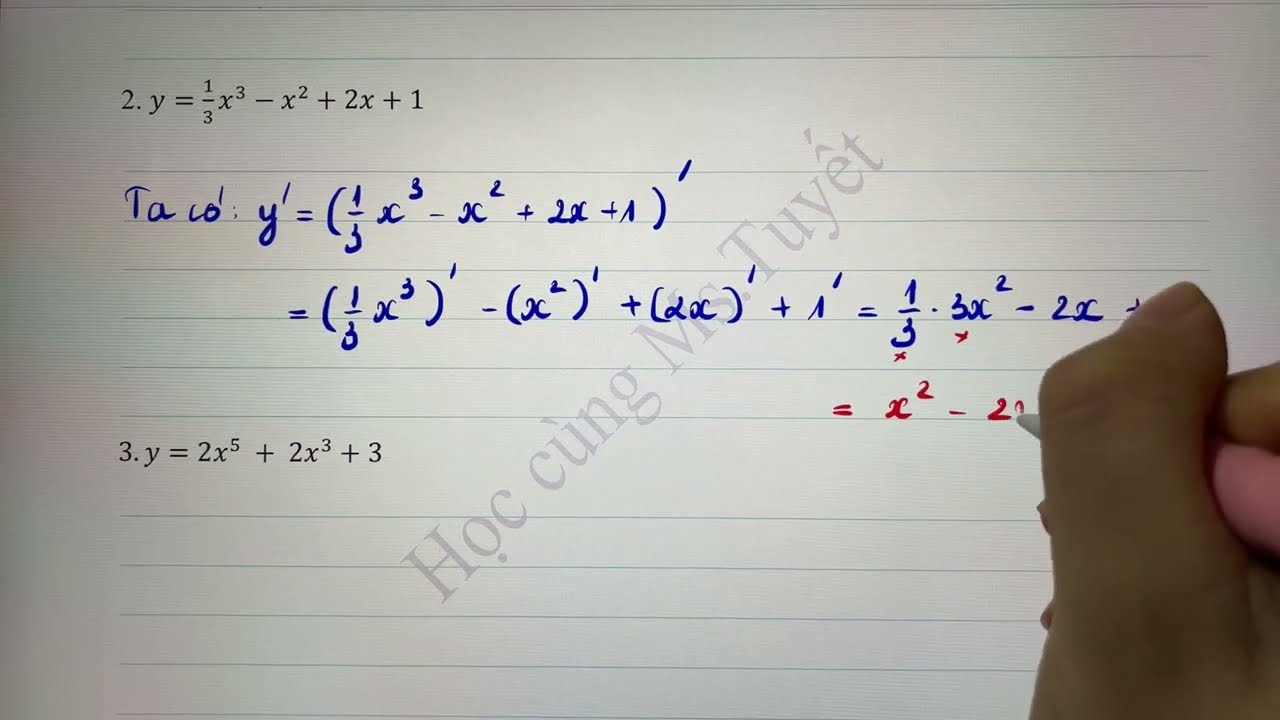 2. y = \frac{1}{3}x³ − x² + 2x + 1
Ta có: y' = (\frac{1}{3}x³ − x² + 2x + 1)'
= (\frac{1}{3}x³)' − (x²)' + (2x)' + 1' = \frac{1}{3} · 3x² − 2x +
= x² − 2
3. y = 2x⁵ + 2x³ + 3
Học cùng Ms.Tuyết